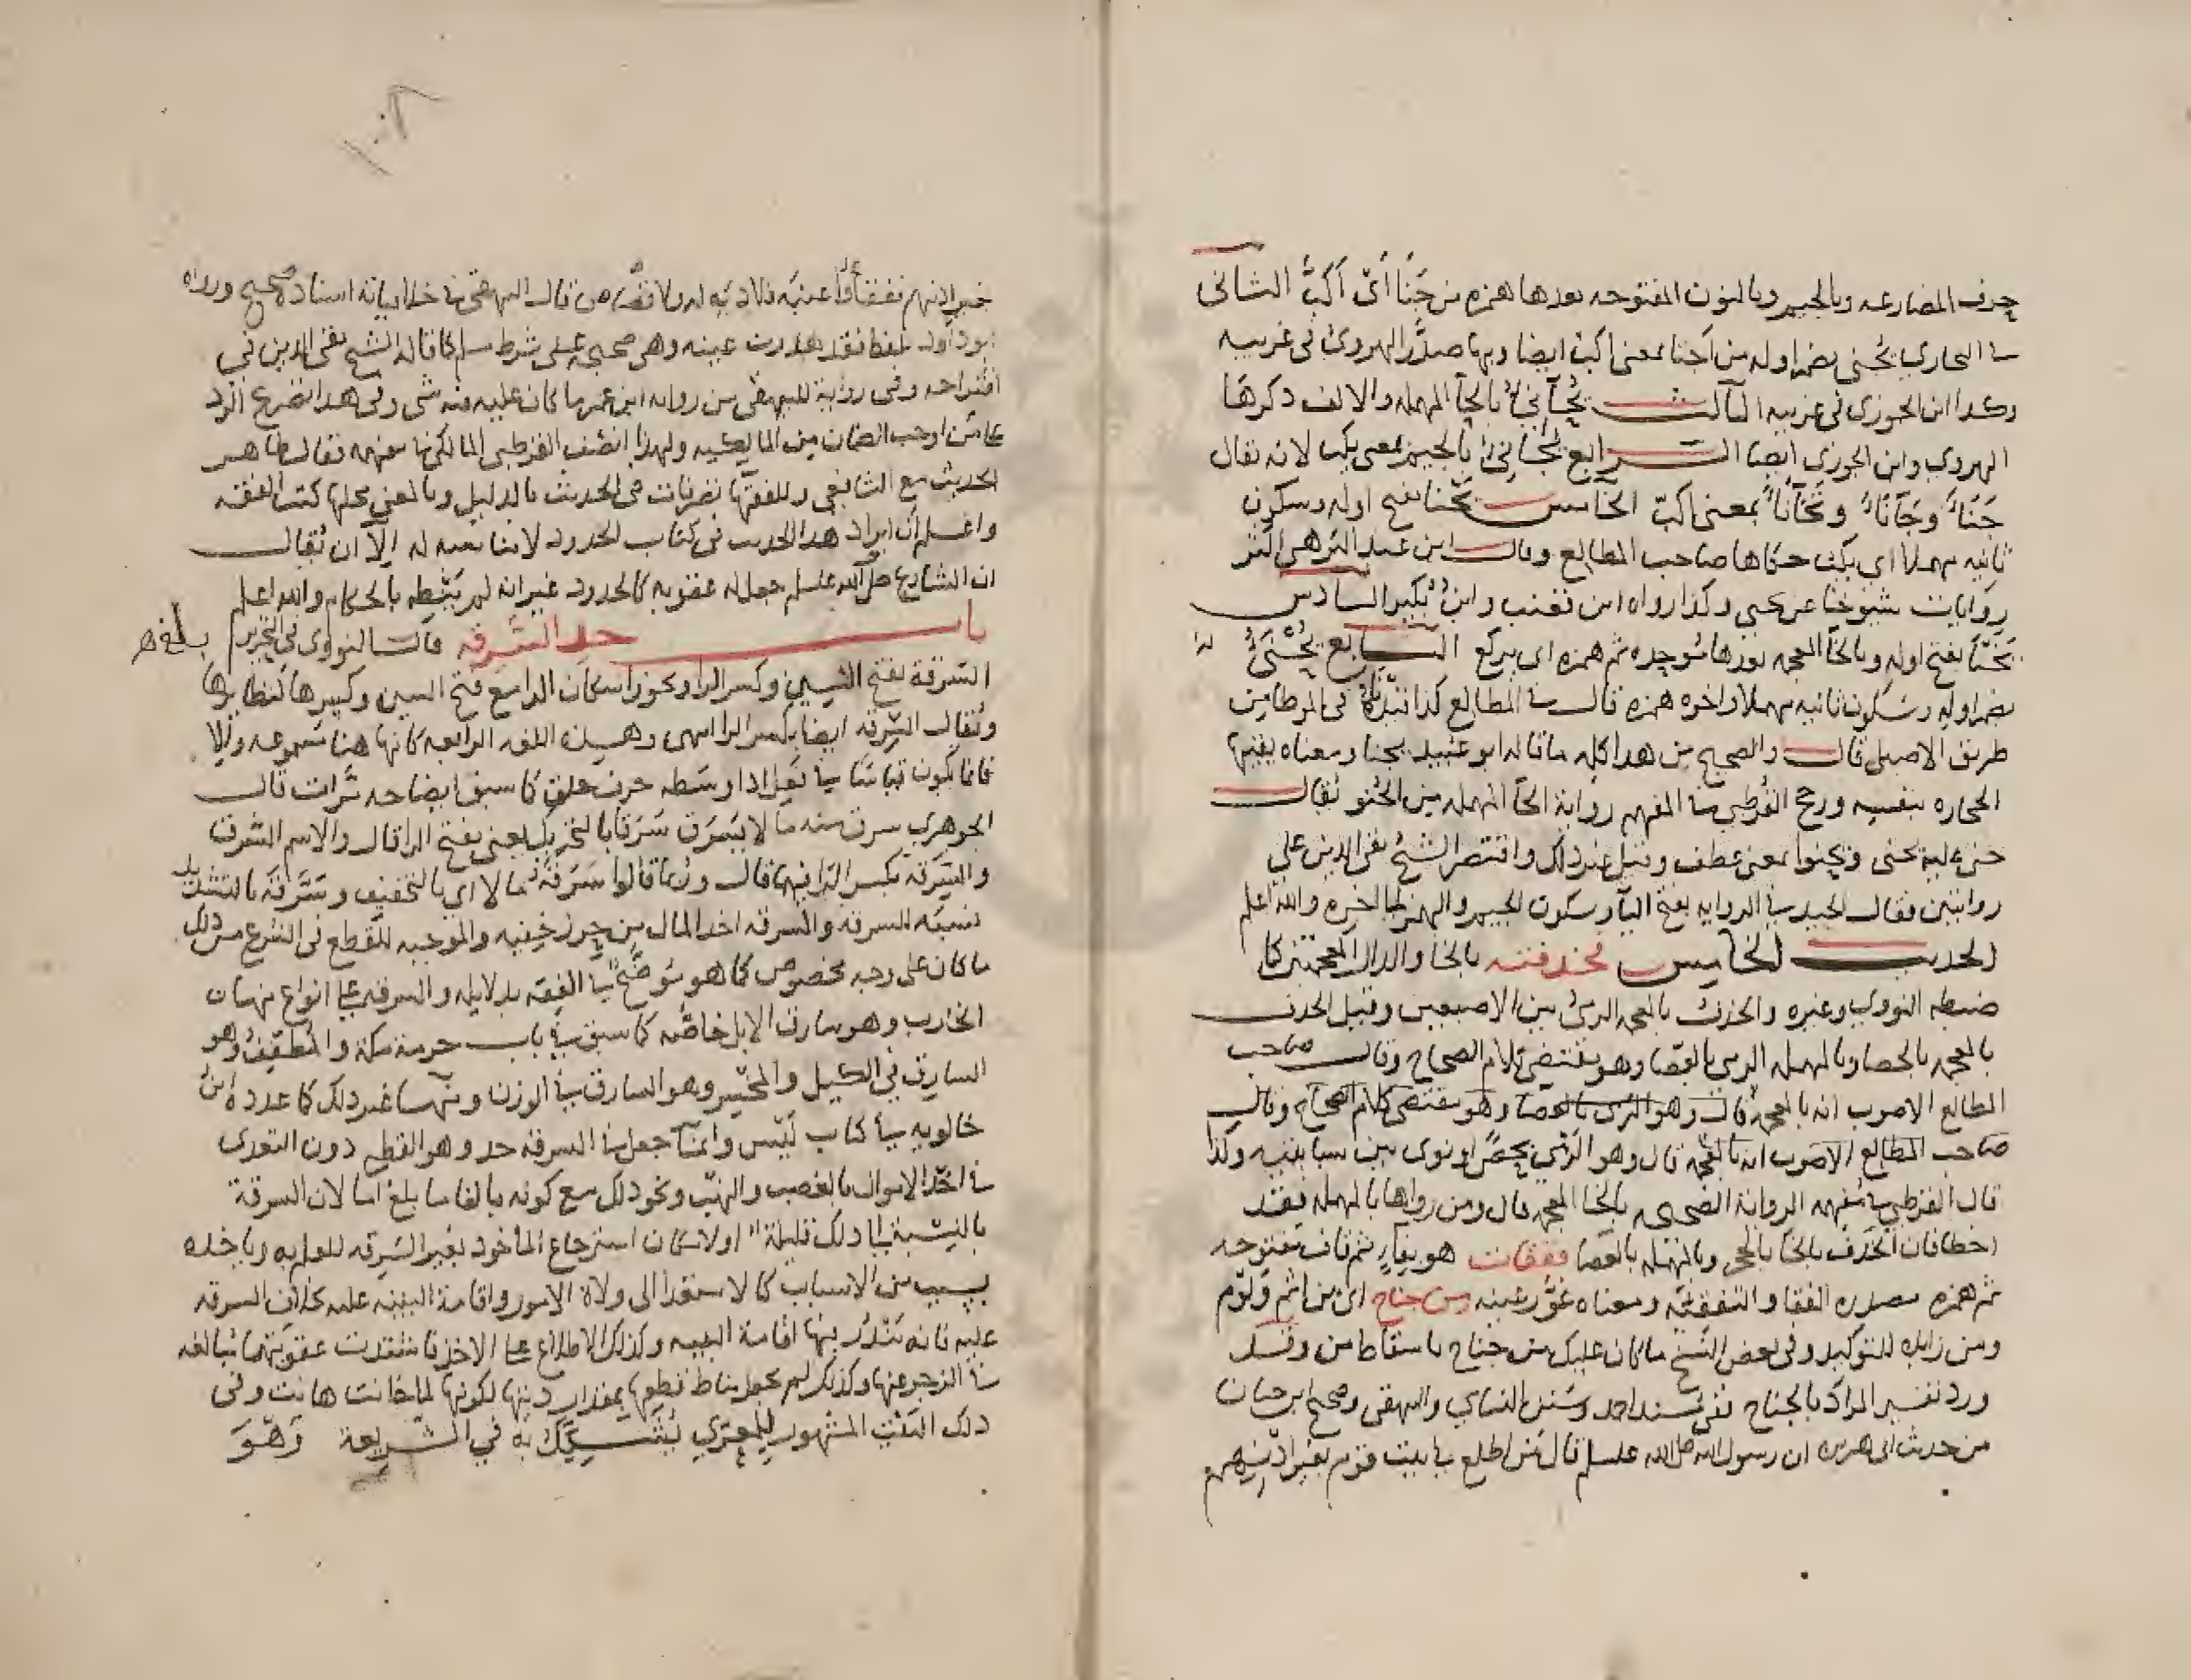 حرف المضارعه وبالجيم وبالنون المفتوحه بعدها همزه من جَنَأ أي أكَبَّ الثاني
في البخاري يُجنى بضم اوله من اجنا بمعنى اكب ايضا وبها صدَّر الهروى في غريبه
وكدا ابن الجوزى في غريبه الثالث يُحَاني بالحآ المهمله والالف دكرها
الهروي وابن الجوزي ايضا الرابع يُجَانِئ بالجيم بمعنى يكب لانه يقال
جَنَاءً وجَآنَاءً بمعنى اكبّ الخامس يَحْنا بفتح اوله وسكون
ثانيه مهملا اى يكب حكاها صاحب المطالع وقال ابن عبد البر هي اكثر
روايات شيوخنا عن يحيى وكذا رواه ابن قعنب وابن بُكير السادس
بفتح اوله وبالخا المعجمه بعدها موحده ثم همزه اى يركع السابع
بضم اوله وسكون ثانيه مهملا واخره همزه قال في المطالع كذا قيدناه في الموطا من
طريق الاصيلى قال والصحيح من هدا كله ما قاله ابو عبيد يجنا ومعناه يقيها
الحجاره بنفسه ورجح القرطبي في المفهم روايه الحآ المهمله من الحُنُو يقال
حنى عليه يحنى ويحنوا بمعنى عطف وقيل غير ذلك واقتصر الشيخ تقي الدين على
روايتين فقال الجيد في الروايه بفتح اليآ وسكون الجيم والهمز الى اخره والله اعلم
الحديث الخامس فخذفته بالخا والدال المعجمتين كدا
ضبطه النووي وغيره والخذف بالمعجمه الرميُ بين الاصبعين وقيل الخدف
بالمعجمه بالحصا وبالمهمله الرمى بالعصا وهو يقتضي كلام الصحاح وقال صاحب
المطالع الاصوب انه بالمعجمه قال وهو الرمى بالعصا وهو مقتضى كلام الصحاح وقال
صاحب المطالع الاصوب انه بالمعجمه قال وهو الرَّمي بحصًى او نوى بين سبابتيه وكذا
قال القرطبي في مُفهمه الروايه الصحيحه بالخا المعجمه قال ومن رواها بالمهمله فقد
اخطا فان الخذف بالخا بالحجر وبالمهمله بالعصا ففقات هو بفاءٍ ثم قاف مفتوحه
ثم همزه مصدره الفقا والتفقئه ومعناه عَوَّر عينه من جناح اى من اثم ولَوم
ومن زايده للتوكيد وفى بعض النسخ ما كان عليك جناح باسقاط من وقد
ورد تفسير المراد بالجناح ففى مسند احمد وسنن النساي والبيهقى وصحيح ابن حبان
من حديث ابى هريره ان رسول الله صلى الله عليه وسلم قال من اطلع في بيت قوم بغير اذنهم
١٠٨
بغير اذنهم ففقأوا عينه فلا ديه له ولا قصاص قال البيهقي في خلافياته اسناده صحيح ورواه
ابو داود بلفظ فقد هدرت عينه وهي صحيحه على شرط مسلم كما قاله الشيخ تقي الدين في
اقتراحه وفى رواية للبيهقي من روايه ابن عمر ما كان عليه فيه شى وفى هدا اصرح الرد
على من اوجب الضمان من المالكيه ولهذا انصف القرطبى المالكى في مفهمه فقال ظاهر
الحديث مع الشافعي وللفقها تصرفات في الحديث بالدليل وبالمعنى محلها كتب الفقه
واعلم ان ايراد هدا الحديث في كتاب الحدود لا مناسبه له الآ ان يُقال
ان الشارع صلى الله عليه وسلم جعل له عقوبه كالحدود غير انه لم يَنُطه بالحكام والله اعلم
باب حد السَّرقه قال النووى في التحرير
بلغ
السَّرَقة بفتح السين وكسر الرا ويجوز اسكان الرا مع فتح السين وكسرها كنظايرها
ويُقال السَّرِقه ايضا بكسر الرا انتهى وهذه اللغه الرابعه كانها هنا مسموعه والا
فانما تكون قياسا في فَعِل اذا وسطه حرف حلق كما سبق ايضاحه مَرَّات قال
الجوهري سرق منه مالا يَسْرِق سَرَقًا بالتحريك يعني بفتح الرا قال والاسم السَّرِق
والسَّرِقه بكسر الرَّا فيهما قال وربما قالوا سَرَقَهُ مالا اي بالتخفيف وسَرَّقَه بالتشديد
نسبَه للسرقه والسرقه اخد المال من حرز خفيه والموجبه للقطع في الشرع من ذلك
ما كان على وجه مخصوص كما هو مُوَضَّحٌ في الفقه بدلايله والسرقه على انواع منها سارق
الخارب وهو سارق الابل خاصّه كما سبق في باب حرمة مكة والمطفّف وهو
السارق في الكيل والمخسر وهو السارق في الوزن ومنها غير ذلك كما عدده ابن
خالويه في كتاب لَيْس وانما جعل في السرقه حد وهو القطع دون التعدى
في اخذ الاموال بالغصب والنهب ونحو ذلك مع كونه بالغا ما بلغ اما لان السرقة
بالنسبة الى ذلك قليلة او لامكان استرجاع المأخود بغير السَّرقه للعلم به وباخذه
بسبب من الاسباب كالاستعدا الى ولاة الامور واقامة البينه عليه بخلاف السرقه
عليه فانه تندُر فيها اقامة البينه وكذلك الاطلاع على الاخذ فاشتدت عقوبتهما مُبالغه
في الزجر عنها وكذلك لم يجعل مناط قطعها بمقدار ديتها لكونها لما خانت هانت وفى
ذلك البَيْت المشهور للمعرّي يُشَكِّكُ به في الشريعة وَهُوَ